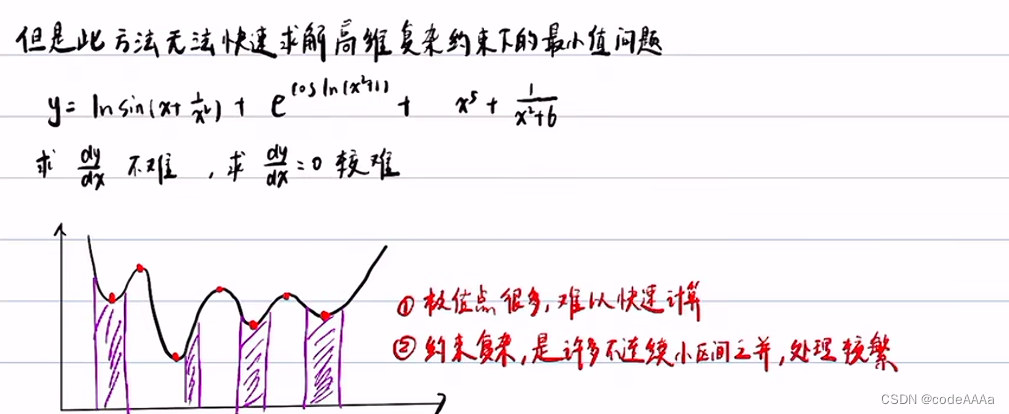 但是此方法无法快速求解高维复杂约束下的最小值问题
y = ln sin(x + 1/x²) + e^(cos ln(x²+1)) + x⁵ + 1/(x²+6)
求 dy/dx 不难，求 dy/dx = 0 较难
① 极值点很多，难以快速计算
② 约束复杂，是许多不连续小区间之并，处理较繁
CSDN @codeAAAa